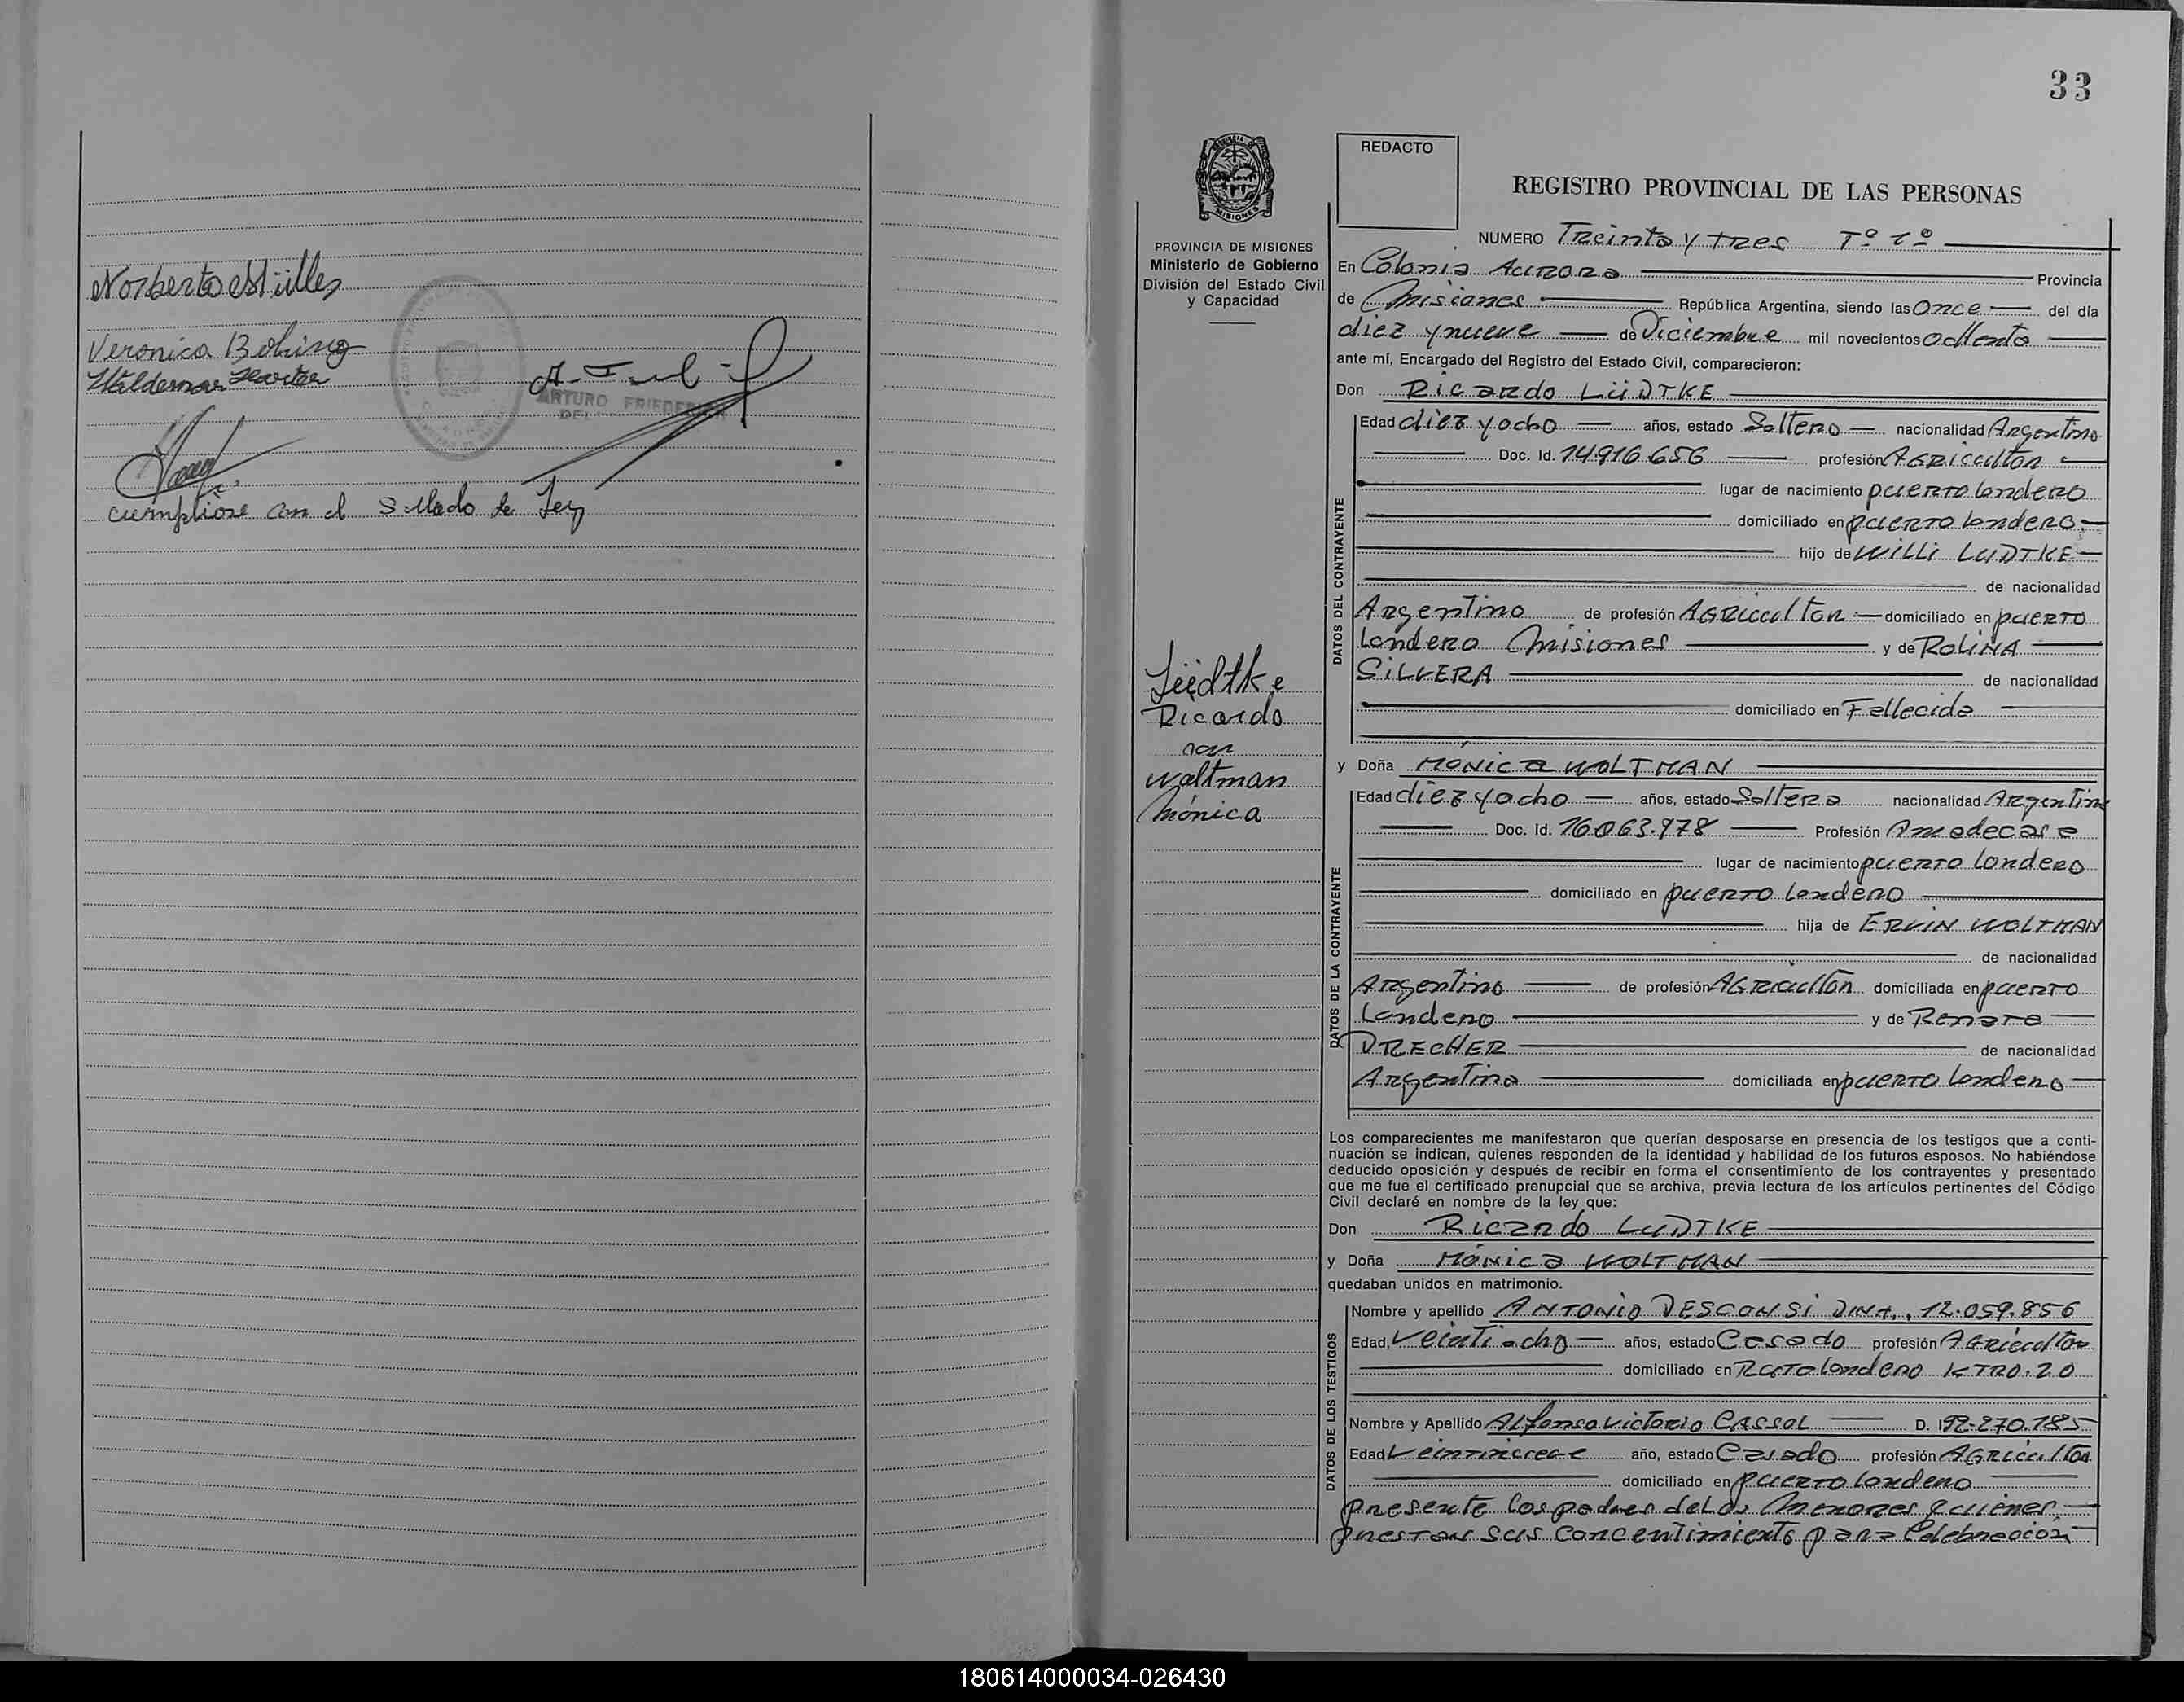 Norberto Müller
Veronica Bohing
Waldemar Harter
ARTURO FRIEDERICH
cumpliose con el Sellado de Ley
33
REDACTO
REGISTRO PROVINCIAL DE LAS PERSONAS
PROVINCIA DE MISIONES
Ministerio de Gobierno
División del Estado Civil
y Capacidad
NUMERO Treinta y tres Tº 1º
En Colonia Aurora Provincia
de Misiones República Argentina, siendo las Once del día
diez y nueve de Diciembre mil novecientos ochenta
ante mí, Encargado del Registro del Estado Civil, comparecieron:
Don Ricardo LüDTKE
DATOS DEL CONTRAYENTE
Edad diez y ocho años, estado Soltero nacionalidad Argentino
Doc. Id. 14.916.656 profesión Agricultor
lugar de nacimiento puerto londero
domiciliado en puerto londero
hijo de Willi LUDTKE
de nacionalidad
Argentino de profesión Agricultor domiciliado en puerto
Londero Misiones y de ROLINA
SILVERA de nacionalidad
domiciliado en Fallecida
Lüdtke
Ricardo
con
woltman
Mónica
y Doña MóNica WOLTMAN
DATOS DE LA CONTRAYENTE
Edad diez y ocho años, estado Soltera nacionalidad Argentina
Doc. Id. 16.063.978 Profesión Amadecasa
lugar de nacimiento puerto londero
domiciliado en puerto londero
hija de ERVIN WOLTMAN
de nacionalidad
Argentino de profesión Agricultor domiciliada en puerto
Londero y de Renata
DRECHER de nacionalidad
Argentina domiciliada en puerto londero
Los comparecientes me manifestaron que querían desposarse en presencia de los testigos que a conti-
nuación se indican, quienes responden de la identidad y habilidad de los futuros esposos. No habiéndose
deducido oposición y después de recibir en forma el consentimiento de los contrayentes y presentado
que me fue el certificado prenupcial que se archiva, previa lectura de los artículos pertinentes del Código
Civil declaré en nombre de la ley que:
Don Ricardo LUDTKE
y Doña Mónica WOLTMAN
quedaban unidos en matrimonio.
DATOS DE LOS TESTIGOS
Nombre y apellido ANTONIO DESCONSI 12.059.856
Edad, Veintiocho años, estado Casado profesión Agricultor
domiciliado en Pto londero KTRO. 20
Nombre y Apellido Alfonso Victorio CASSOL D. I 92.270.185
Edad Veintinueve año, estado Casado profesión Agricultor
domiciliado en puerto londero
presente los padres de los Menores quienes
prestan sus concentimiento para celebración
180614000034-026430